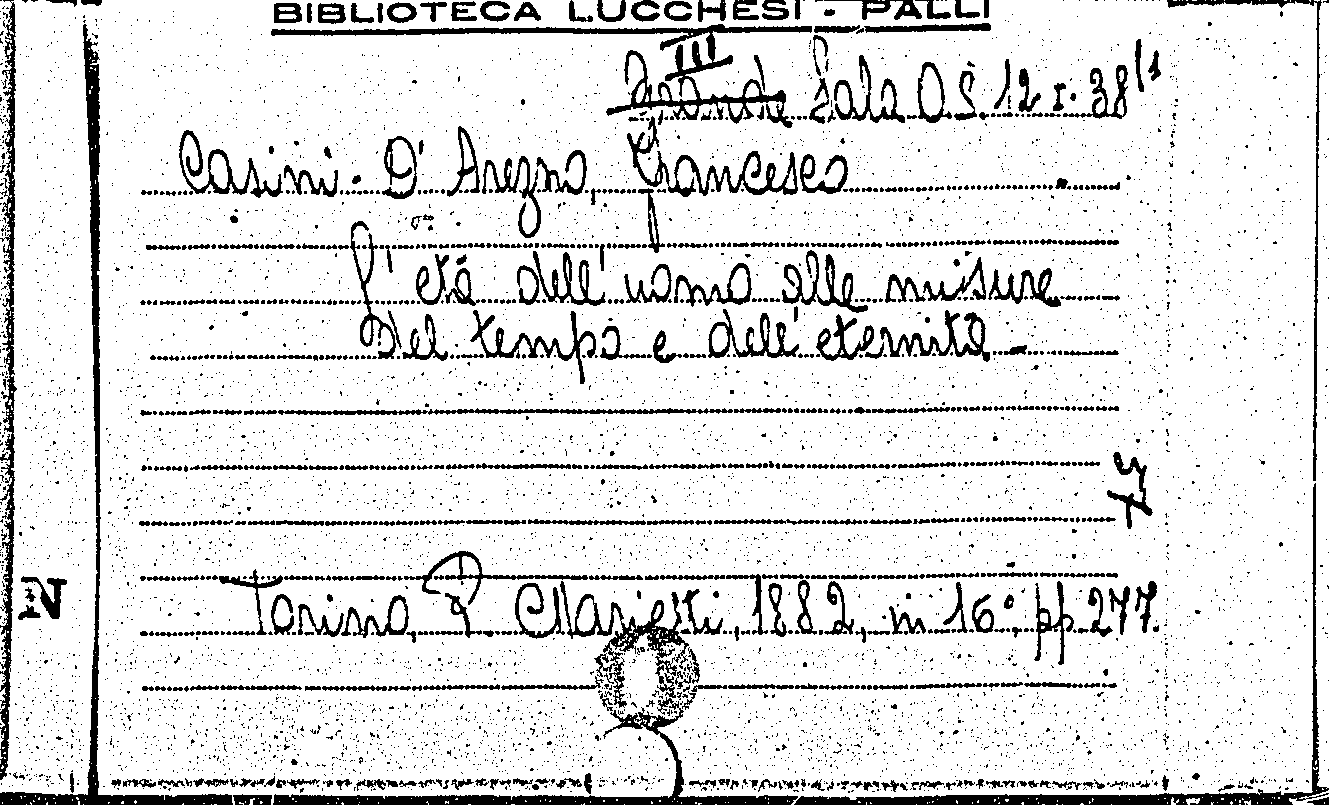 BIBLIOTECA LUCCHESI - PALLI
III
Grande Sala O S. 12 I. 38(1
Casini - D' Arezzo, Francesco
L' età dell' uomo alle misure
del tempo e dell' eternità -
Torino, P. Marietti, 1882, in 16°, pp 277.